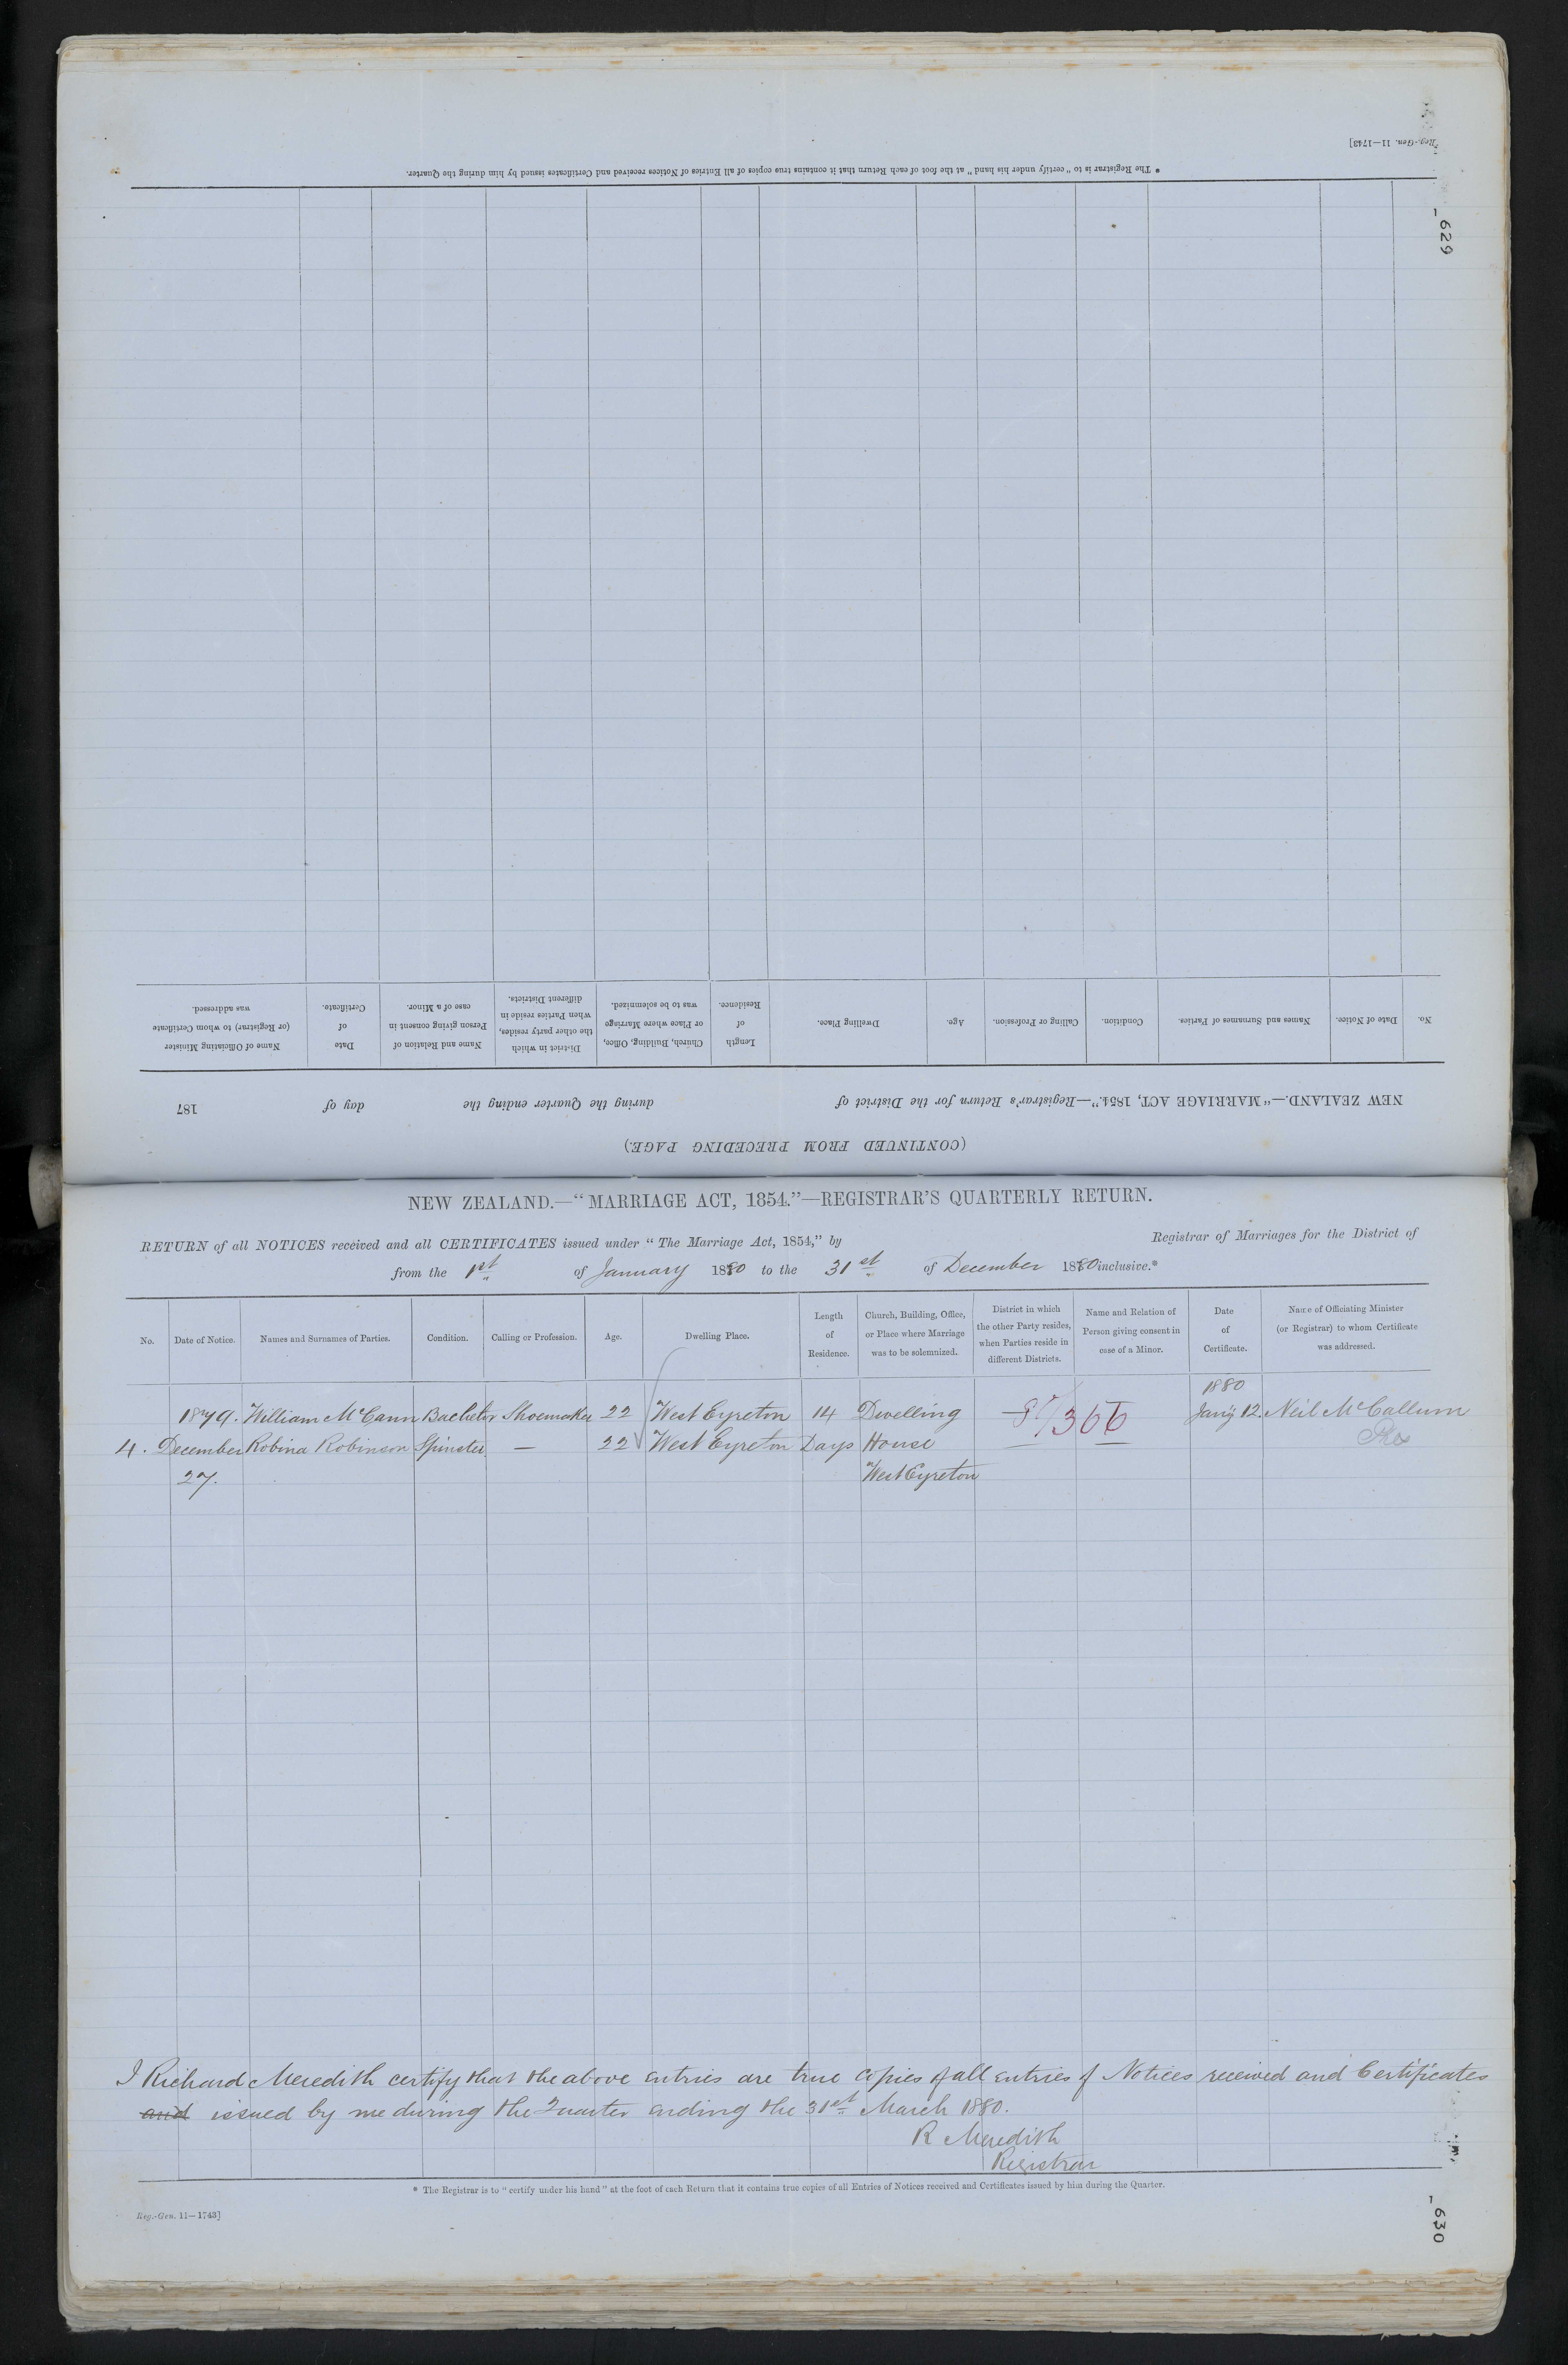 Reg.-Gen. 11—1743]
* The Registrar is to "certify under his hand" at the foot of each Return that it contains true copies of all Entries of Notices received and Certificates issued by him during the Quarter.
629
(CONTINUED FROM PRECEDING PAGE.)
NEW ZEALAND.—"MARRIAGE ACT, 1854."—Registrar's Return for the District of during the Quarter ending the day of 187
No. Date of Notice. Names and Surnames of Parties. Condition. Calling or Profession. Age. Dwelling Place. Length of Residence. Church, Building, Office, or Place where Marriage was to be solemnized. District in which the other party resides, when Parties reside in different Districts. Name and Relation of Person giving consent in case of a Minor. Date of Certificate. Name of Officiating Minister (or Registrar) to whom Certificate was addressed.
NEW ZEALAND.—"MARRIAGE ACT, 1854."—REGISTRAR'S QUARTERLY RETURN.
RETURN of all NOTICES received and all CERTIFICATES issued under "The Marriage Act, 1854," by Registrar of Marriages for the District of
from the 1st of January 1880 to the 31st of December 1880 inclusive.*
No. Date of Notice. Names and Surnames of Parties. Condition. Calling or Profession. Age. Dwelling Place. Length of Residence. Church, Building, Office, or Place where Marriage was to be solemnized. District in which the other Party resides, when Parties reside in different Districts. Name and Relation of Person giving consent in case of a Minor. Date of Certificate. Name of Officiating Minister (or Registrar) to whom Certificate was addressed.
1880
1879. William McCann Bachelor Shoemaker 22 West Eyreton 14 Dwelling 80/366 Jany 12. Neil McCallum
4. December Robina Robinson Spinster — 22 West Eyreton Days House
27. West Eyreton
I Richard Meredith certify that the above entries are true copies of all entries of Notices received and Certificates
and issued by me during the Quarter ending the 31st March 1880.
R Meredith
Registrar
* The Registrar is to "certify under his hand" at the foot of each Return that it contains true copies of all Entries of Notices received and Certificates issued by him during the Quarter.
Reg.-Gen. 11—1743]
630